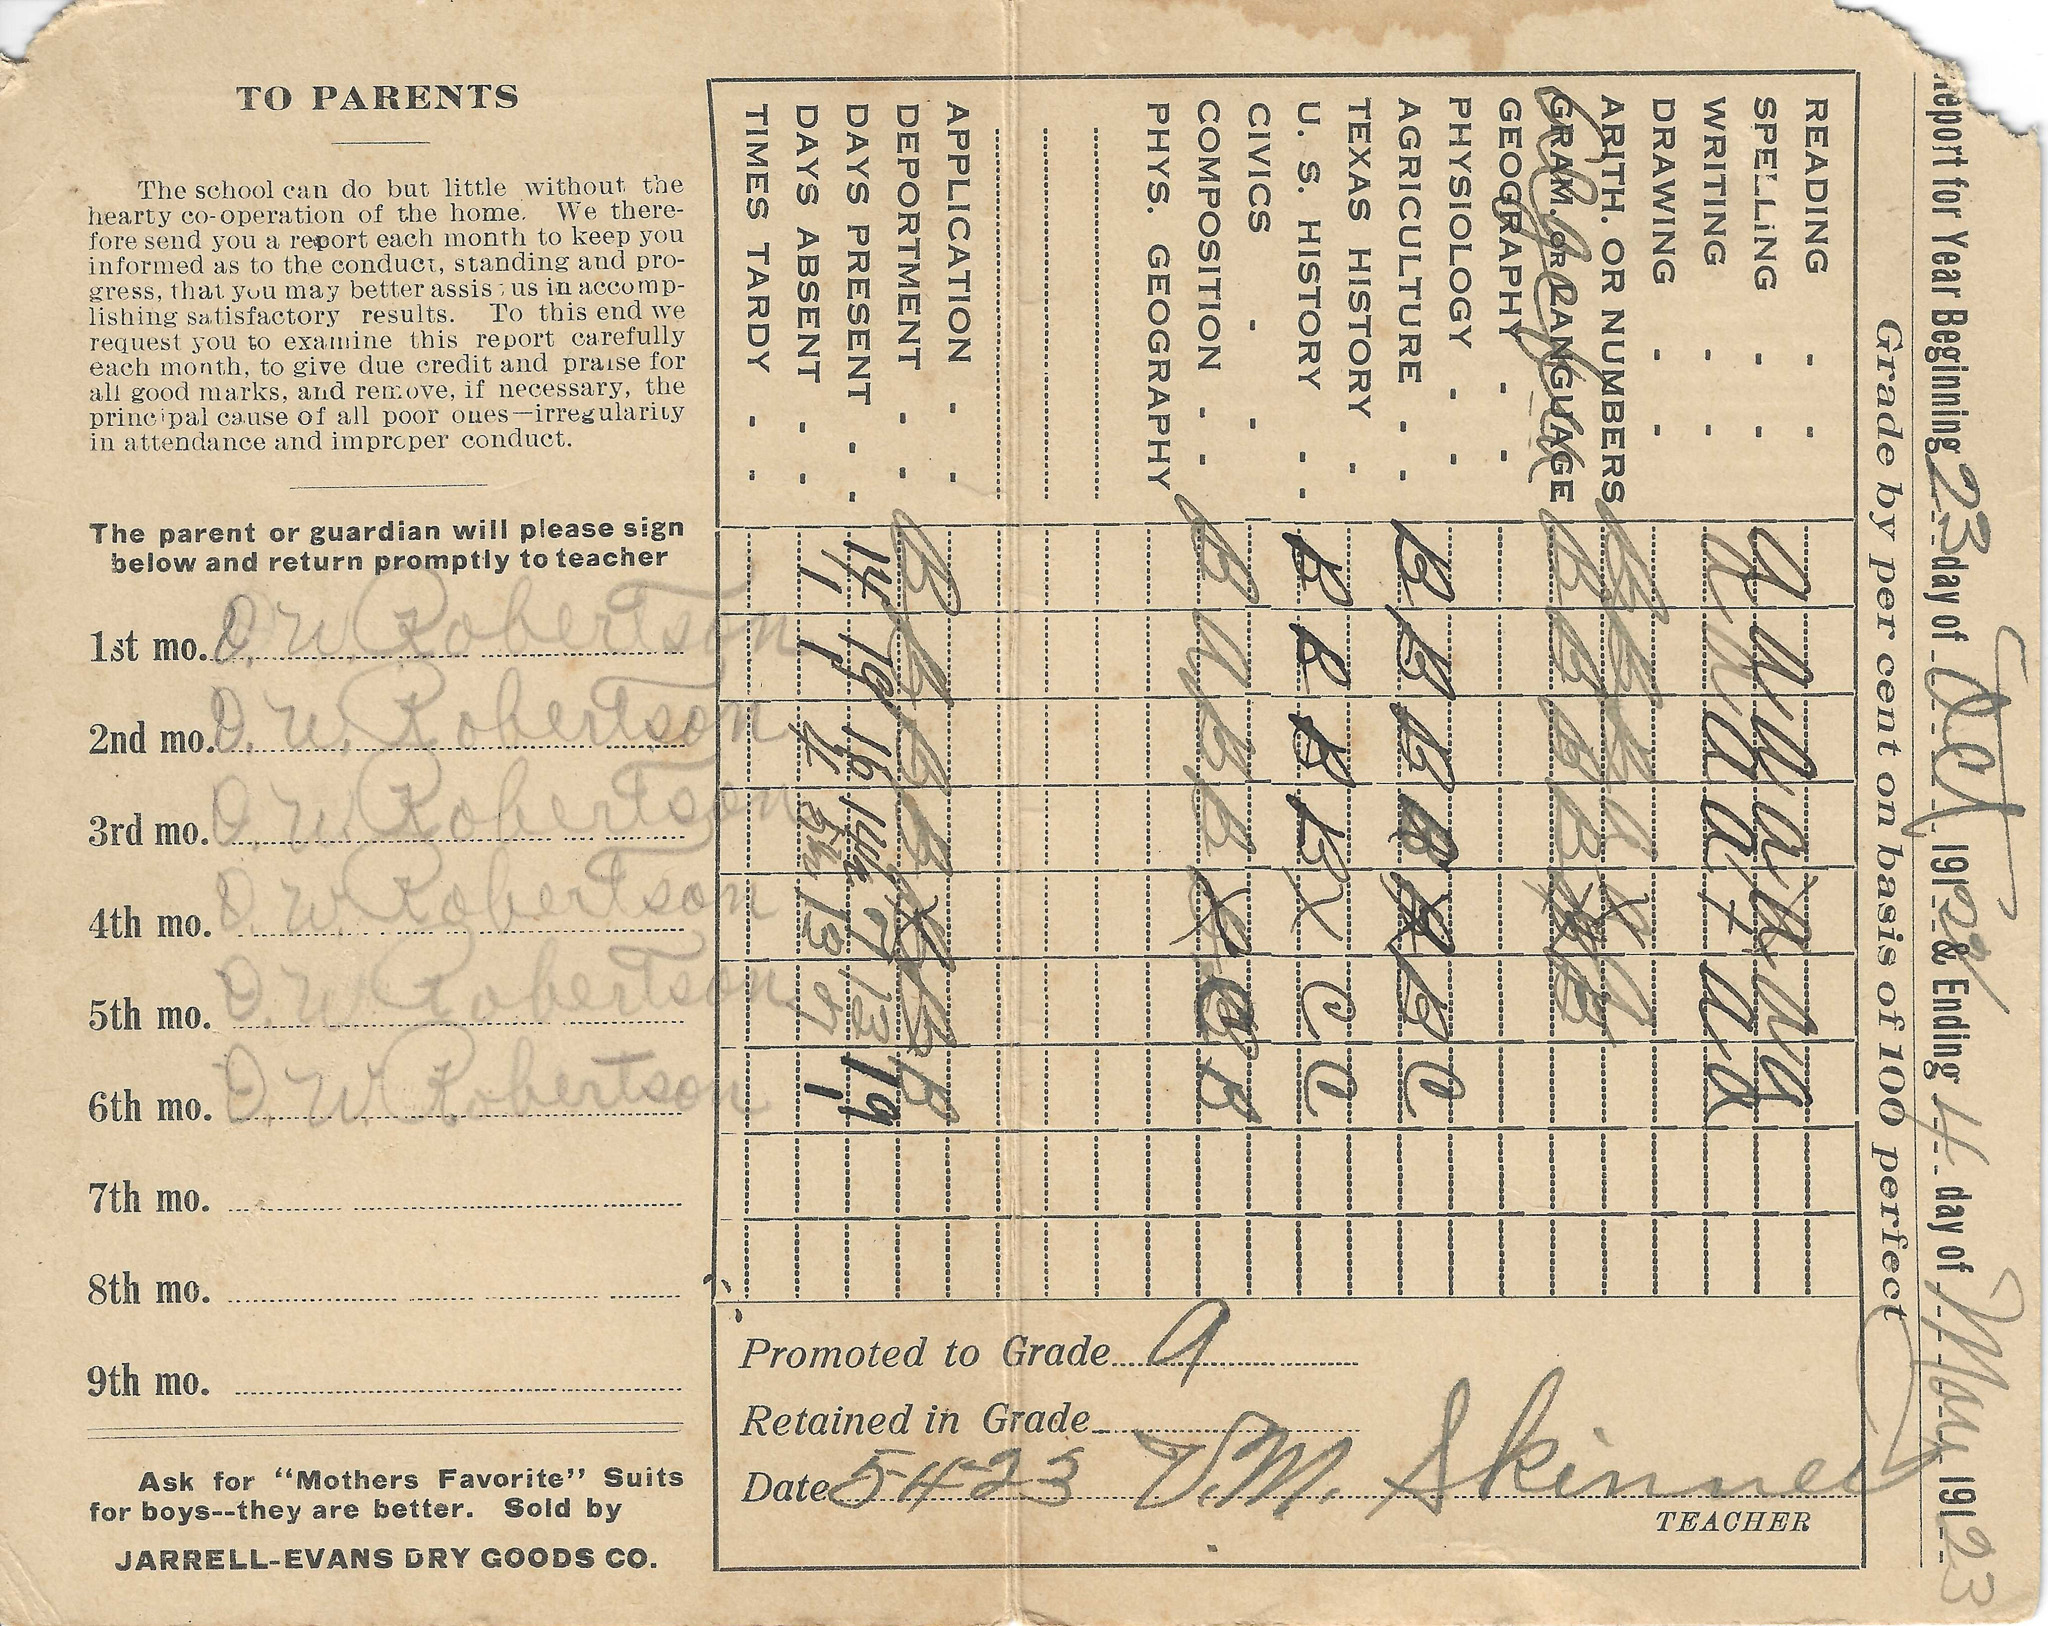 TO PARENTS
The school can do but little without the
hearty co-operation of the home. We there-
fore send you a report each month to keep you
informed as to the conduct, standing and pro-
gress, that you may better assist us in accomp-
lishing satisfactory results. To this end we
request you to examine this report carefully
each month, to give due credit and praise for
all good marks, and remove, if necessary, the
principal cause of all poor ones—irregularity
in attendance and improper conduct.
The parent or guardian will please sign
below and return promptly to teacher
1st mo. O. W. Robertson
2nd mo. O. W. Robertson
3rd mo. O. W. Robertson
4th mo. O. W. Robertson
5th mo. O. W. Robertson
6th mo. O. W. Robertson
7th mo.
8th mo.
9th mo.
Ask for "Mothers Favorite" Suits
for boys--they are better. Sold by
JARRELL-EVANS DRY GOODS CO.
Report for Year Beginning 23 day of Oct. 1912 2 & Ending 4 day of May 191 23
Grade by per cent on basis of 100 perfect
READING
SPELLING a a a a a a
WRITING a a a a + a a
DRAWING
ARITH. OR NUMBERS B B B a
GRAM. OR LANGUAGE B B B B B
GEOGRAPHY
PHYSIOLOGY
AGRICULTURE B B B B X B C
TEXAS HISTORY
U. S. HISTORY B B B B X C C
CIVICS
COMPOSITION B a B B X B
PHYS. GEOGRAPHY
APPLICATION
DEPORTMENT B B B B X B B
DAYS PRESENT 14 19 16 14½ 7 13 19
DAYS ABSENT 1 1 4 5½ 13 7 1
TIMES TARDY
Promoted to Grade 9
Retained in Grade
Date 5-4-23 V. M. Skinner
TEACHER